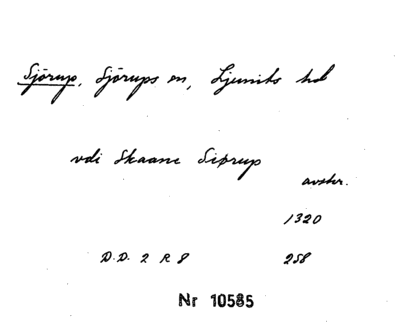 Sjörup, Sjörups sn, Ljunits hd
vdi Skaane Siørup
avskr.
1320
D.D. 2 R 8 258
Nr 10585